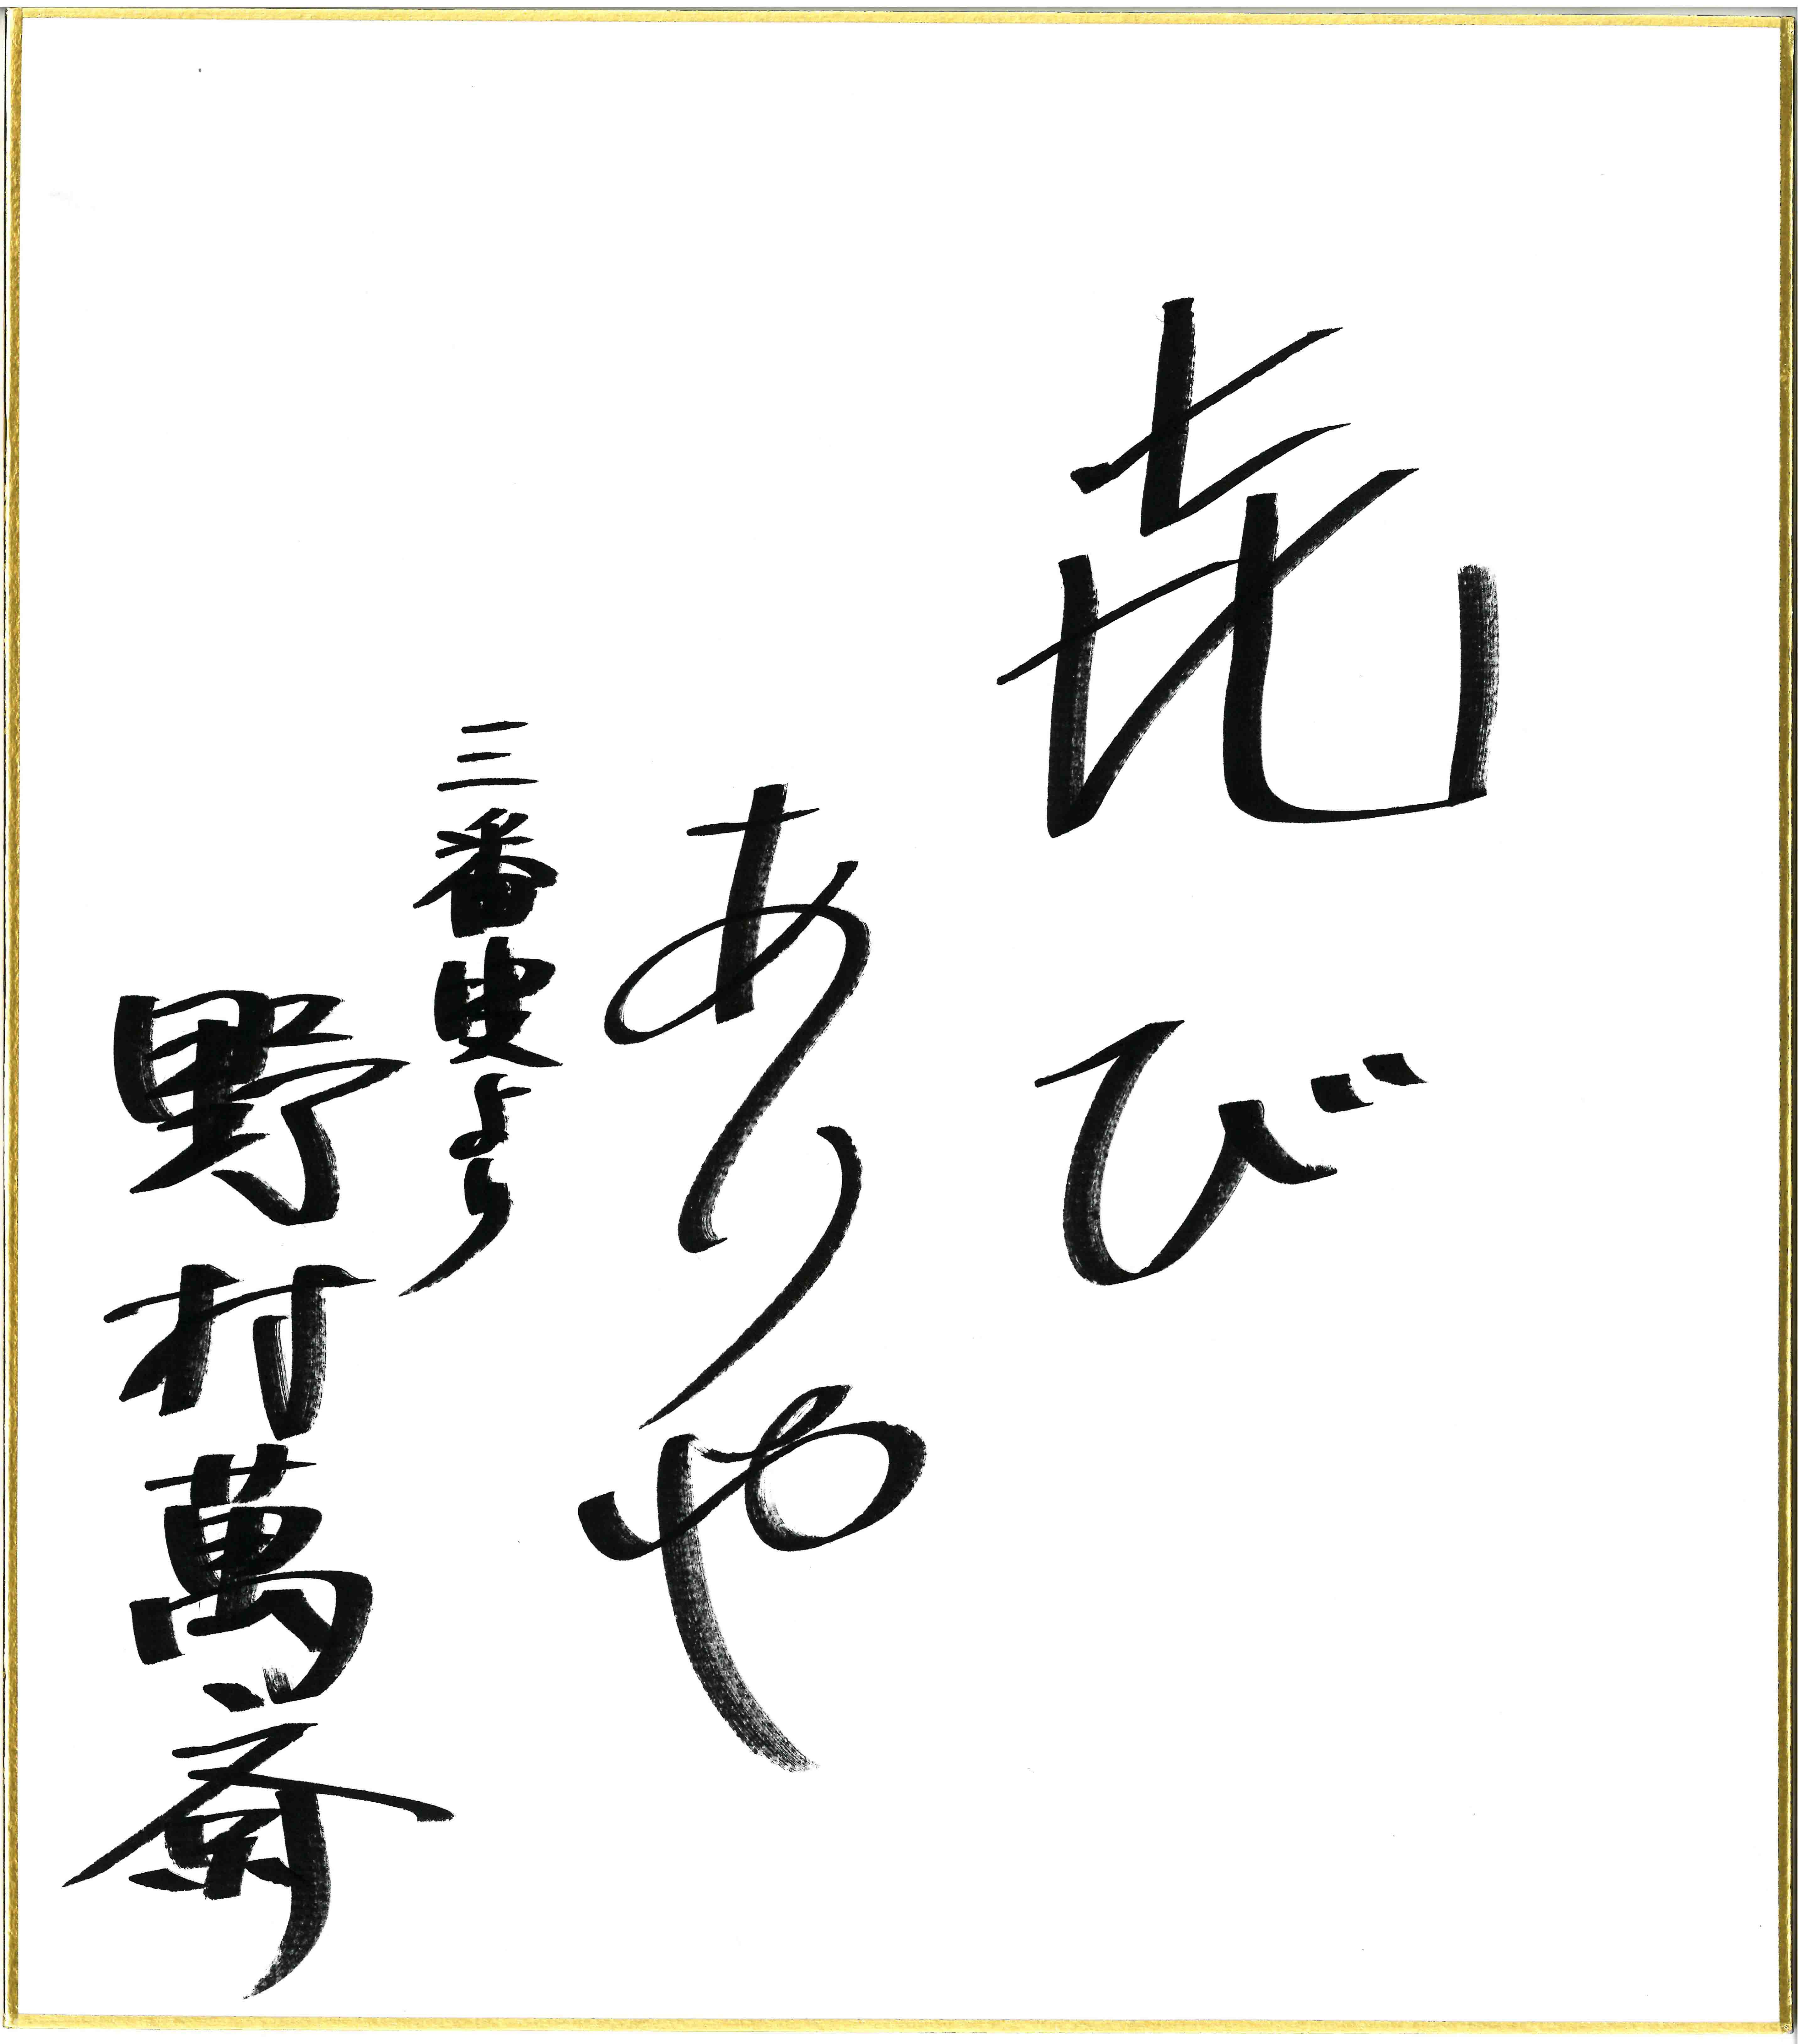 㐂び
ありや
三番叟より
野村萬斎